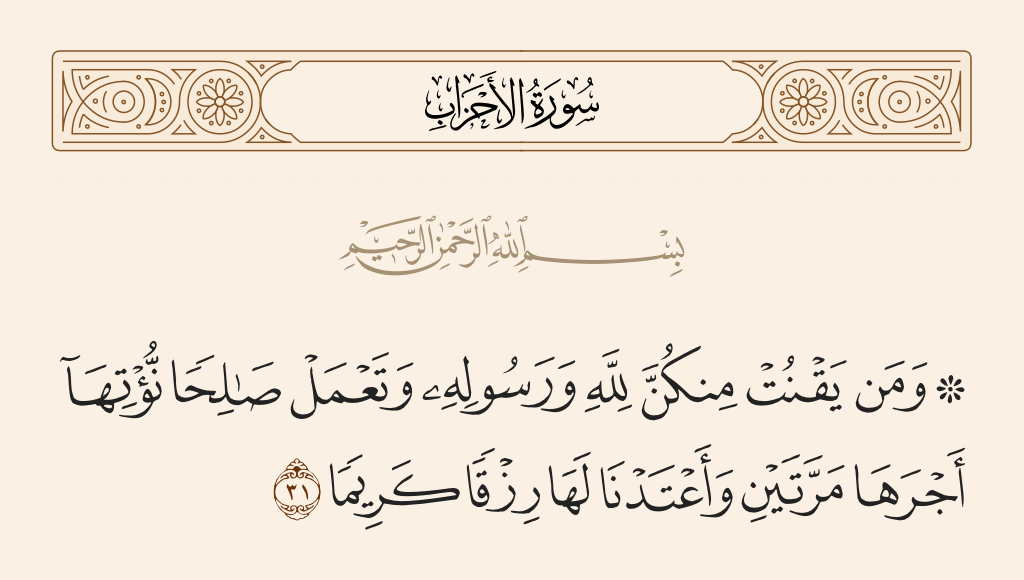 سُورَةُ الأَحْزَابِ
بِسْمِ ٱللَّهِ ٱلرَّحْمَٰنِ ٱلرَّحِيمِ
۞ وَمَن يَقْنُتْ مِنكُنَّ لِلَّهِ وَرَسُولِهِۦ وَتَعْمَلْ صَٰلِحًا نُّؤْتِهَآ
أَجْرَهَا مَرَّتَيْنِ وَأَعْتَدْنَا لَهَا رِزْقًا كَرِيمًا ٣١